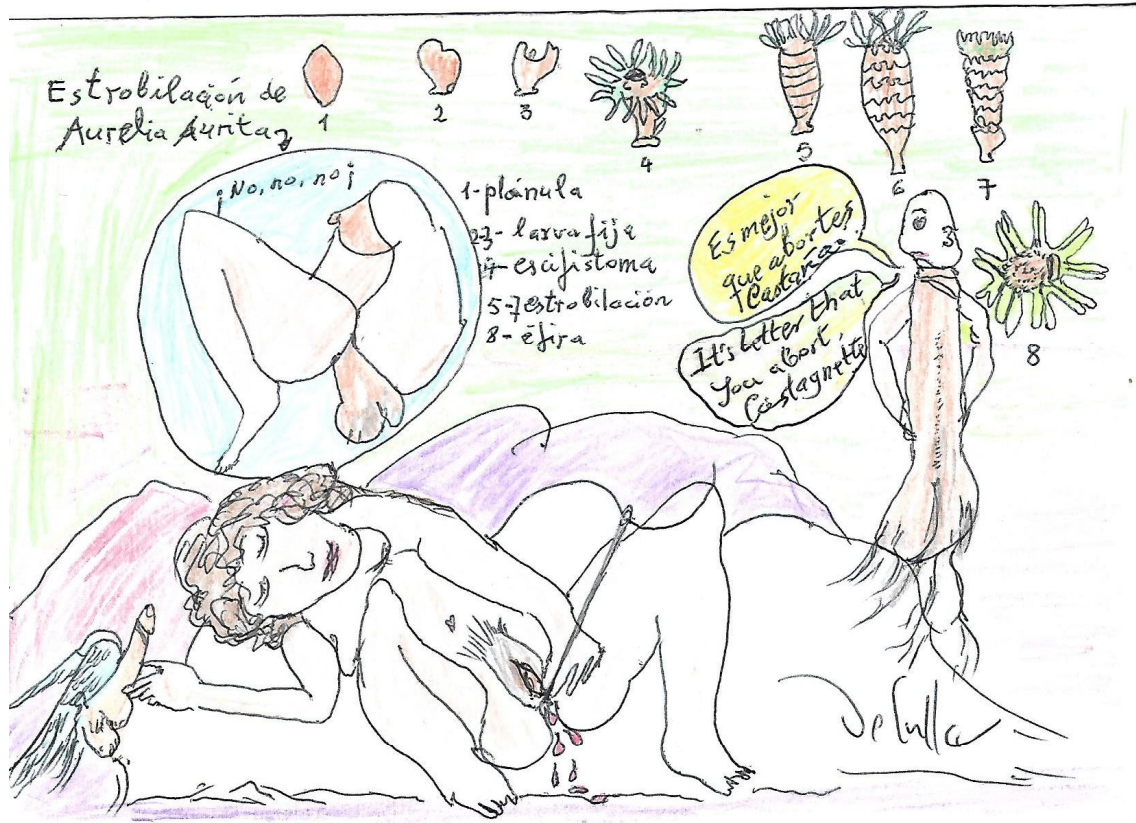 Estrobilación de
Aurelia Aurita
1
2
3
4
5
6
7
8
¡No, no, no¡
1- plánula
2-3- larva fija
4- escifistoma
5-7 estrobilación
8- éfira
Es mejor
que abortes
Castaña.
It's better that
you abort,
Castagnette
3